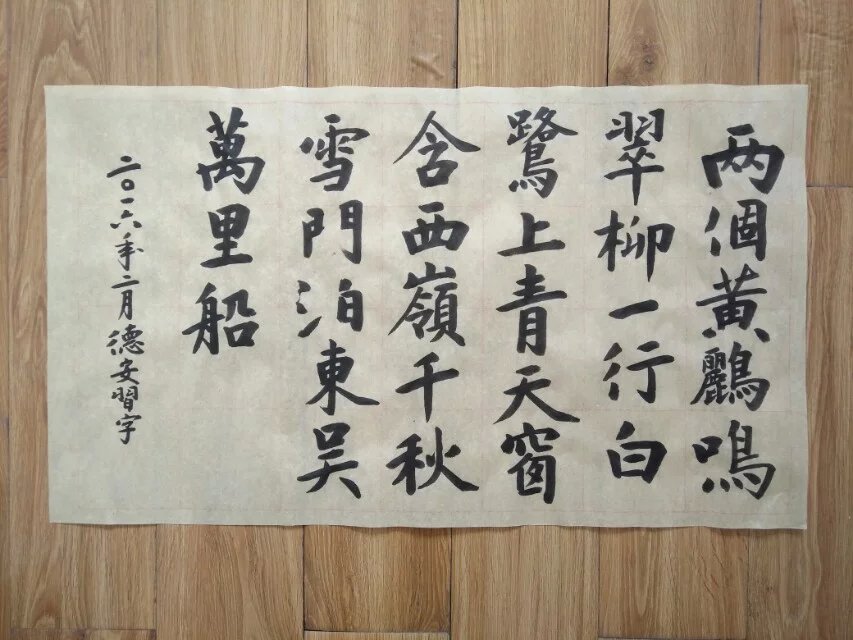 两個黄鸝鳴
翠柳一行白
鷺上青天窗
含西嶺千秋
雪門泊東吴
萬里船
二〇一六年二月德安習字